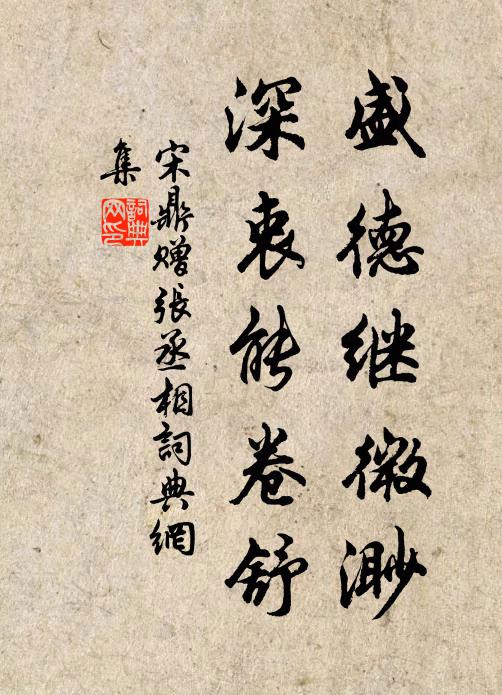 盛德继微渺
深衷能卷舒
宋鼎赠張丞相詞典網
集
詞典
网印